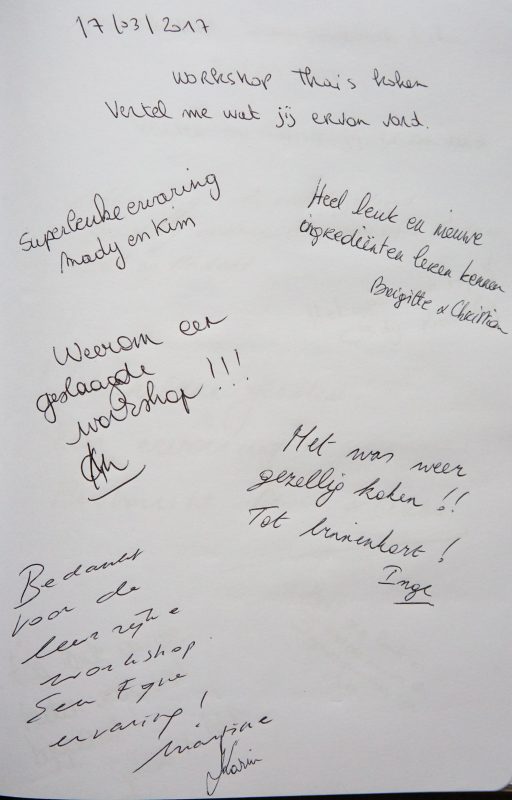 17/03/2017
Workshop Thais koken
Vertel me wat jij ervan vond.
Superleuke ervaring
Mady en Kim
Heel leuk en nieuwe
ingrediënten leren kennen
Brigitte & Christian
Weerom een
geslaagde
workshop!!!
Het was weer
gezellig koken!!
Tot binnenkort!
Inge
Bedankt
voor de
leerrijke
workshop.
Een fijne
ervaring!
Martine
Karin